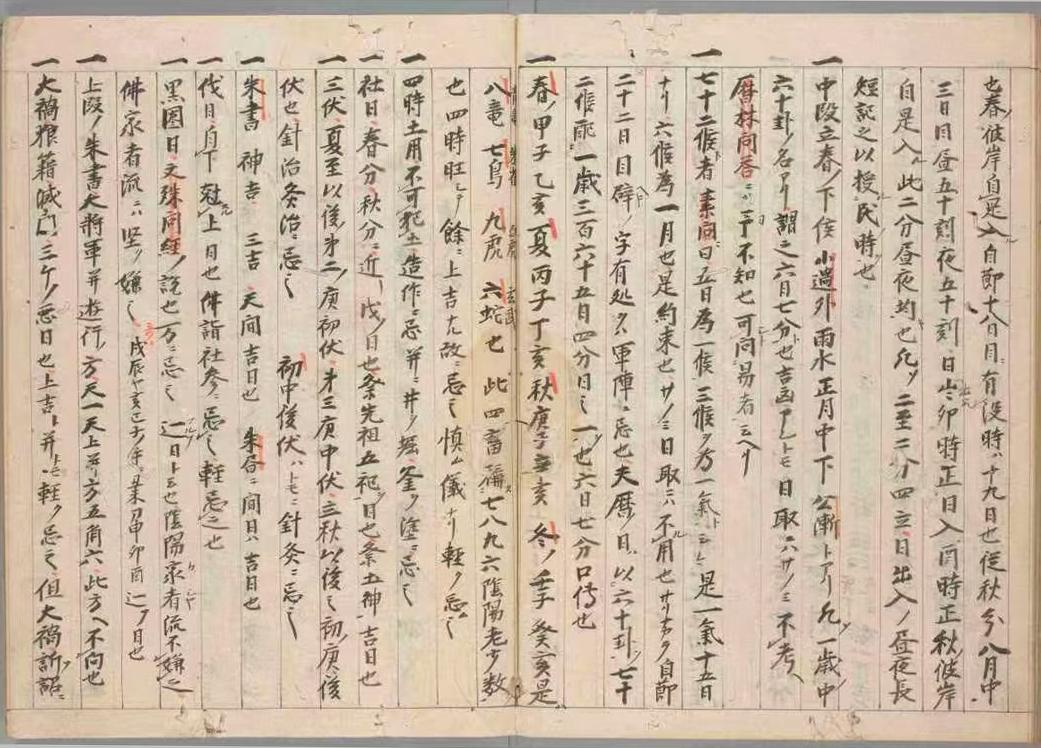 也春彼岸自是入自節十六日目有没時ハ十九日也従秋分八月中
三日目昼五十刻夜五十刻日出卯時正日入酉時正秋彼岸
自是入此二分昼夜均也凡ソ二至二分四立日出入ノ昼夜長
短記之以授民時也
一中段立春ノ下侯小過外雨水正月中下公漸トアリ凡一歳中
六十卦ノ名アリ謂之六日七分也吉凶アレトモ日取ニハサノミ不考
暦林問答ニハ予不知也可問易者ニ云ヘリ
一七十二候者素問曰五日為一候三候ヲ為一氣トシ是一氣十五日
ナリ六候為一月也是約束也サノミ日取ニハ不用也自節
二十二日目辟ノ字有処ヲ軍陣ニ忌也夫暦日以六十卦七十
二候配一歳三百六十五日四分日之一也六日七分口傳也
一春ノ甲子乙亥夏丙子丁亥秋庚子辛亥冬ノ壬子癸亥是
八竜七鳥九虎六蛇也此四畜稱七八九六陰陽老少数
玄武
也四時旺シテ餘ニ上吉ナル故ニ忌之慎ム儀ナリ軽ク忌之
一四時土用不可犯土造作ニ忌并ニ井ヲ堀釜ヲ塗ニ忌之
社日春分秋分ニ近戊ノ日也祭先祖五祀日也祭五神吉日也
一三伏夏至以後第二庚初伏第三庚中伏立秋以後初庚後
伏也針治灸治ニ忌之 初中後伏ハトモニ針灸ニ忌之
一朱書 神吉 三吉 天間吉日也 朱合ニ間日ハ吉日也
一伐日自下尅上日也佛詣社参ニ忌之軽忌之也
一黒圏日文殊問經ノ説也万ニ忌之 辷日ト云也陰陽家者流不嫌之
佛家者流ハ坚ク嫌之
一上段ノ朱書大将軍并遊行ノ方天一天上并方五角六此方ヘ不向也
一大禍狼籍滅門三ケノ悪日也上吉ト并トモ軽ク忌之但大禍訴詔ニ